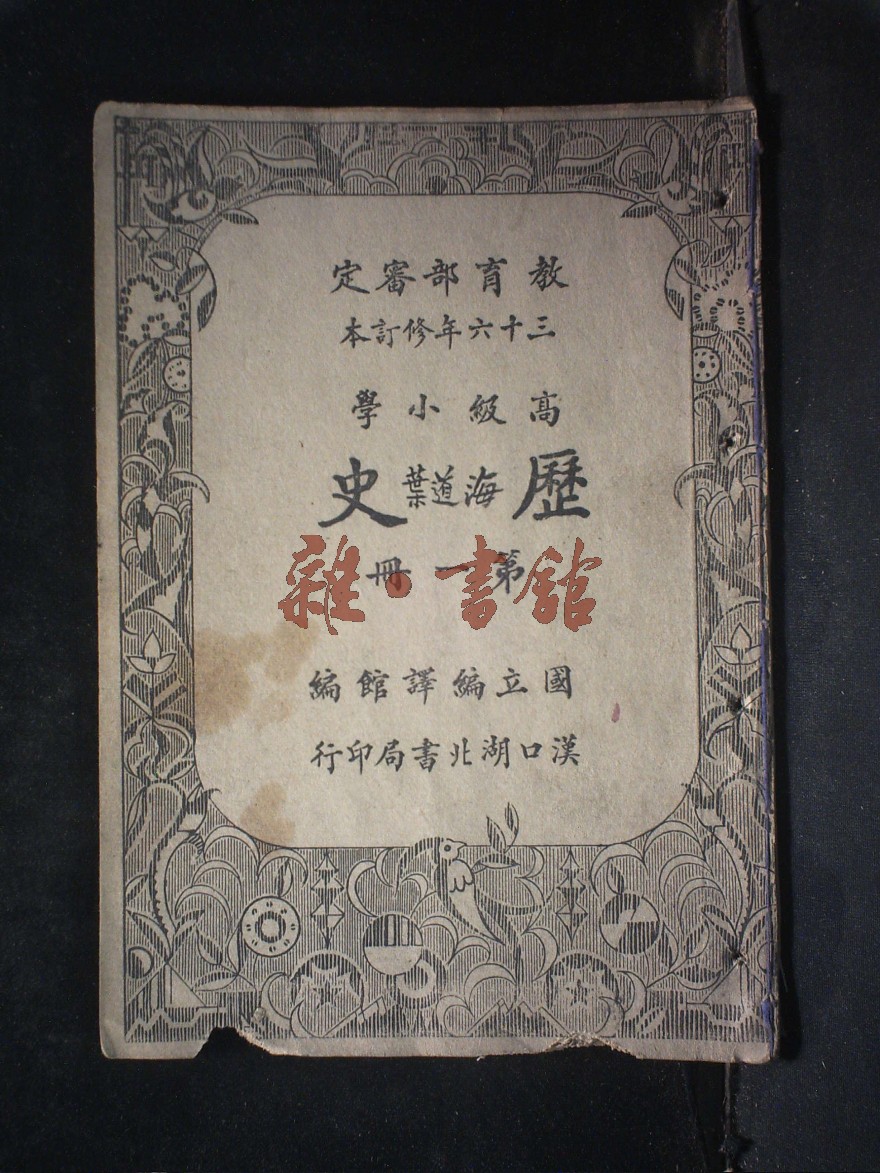 教育部審定
三十六年修訂本
高級小學
歷史
海道葉
第一冊
雜·書館
國立編譯館編
漢口湖北書局印行